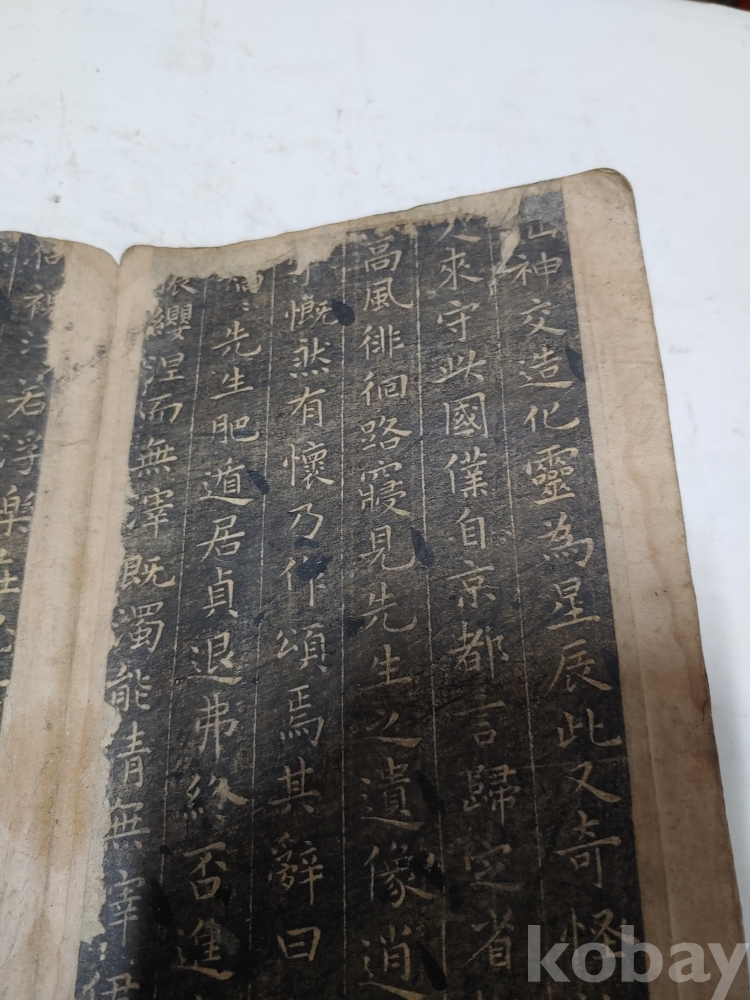 神交造化靈為星辰此又奇怪
來守此國僕自京都言歸定省
高風徘徊路寢見先生之遺像逍
慨然有懷乃作頌焉其辭曰
先生肥遁居貞退弗終否進
纓涅而無滓既濁能清無滓伊
若浮樂在
kobay